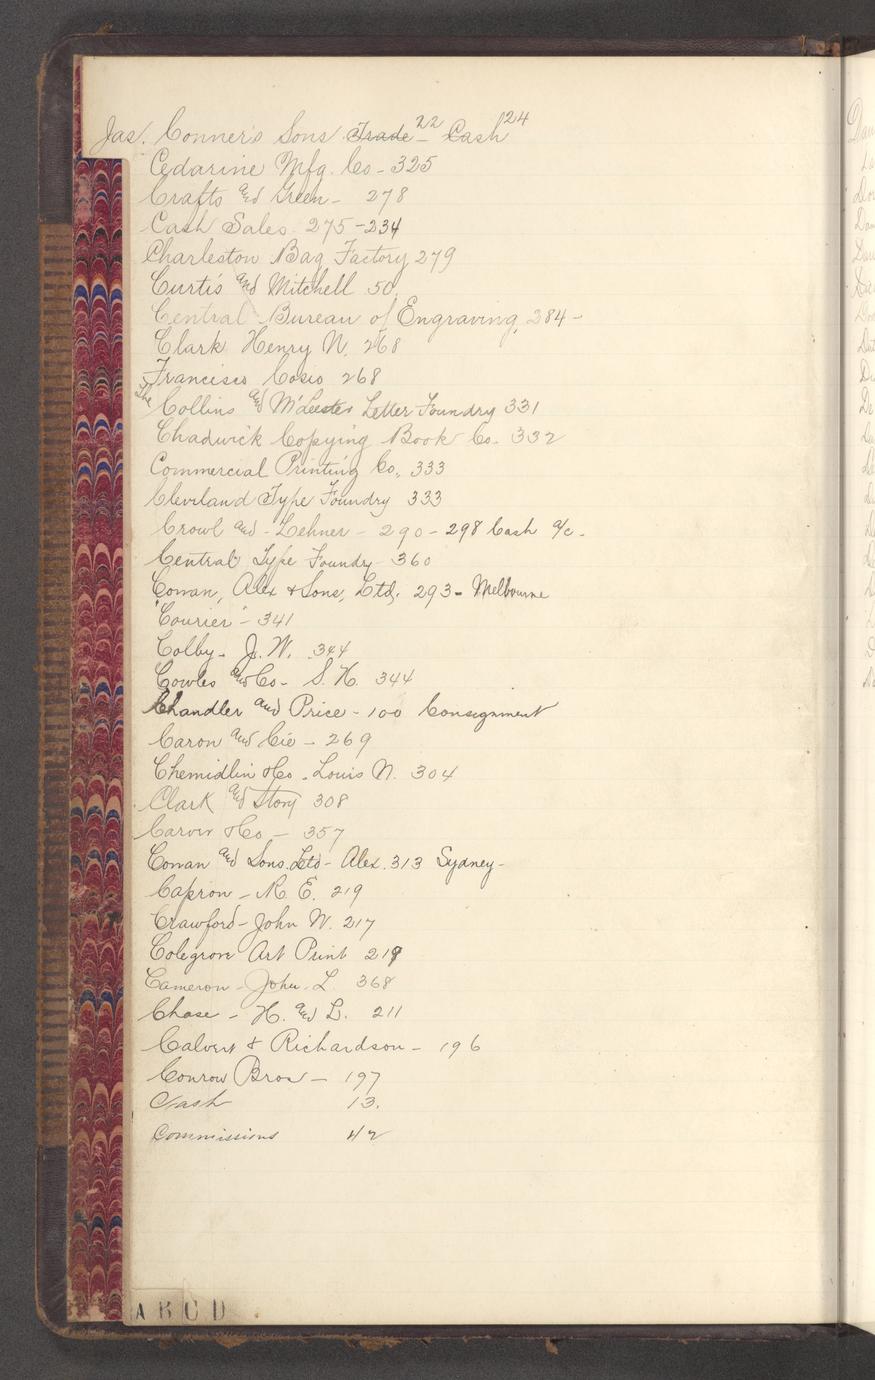 Jas. Conner's Sons Trade 22 - Cash 24
Cedarine Mfg. Co - 325
Crafts and Green - 278
Cash Sales 275 - 234
Charleston Bag Factory 279
Curtis and Mitchell 50
Central Bureau of Engraving, 284 -
Clark Henry N. 268
Francisco Cosio 268
The Collins and M'Leester Letter Foundry 331
Chadwick Copying Book Co. 332
Commercial Printing Co., 333
Cleveland Type Foundry 333
Crowl and - Lehner - 290 - 298 Cash a/c.
Central Type Foundry - 360
Cowan, Alex & Sons, Ltd. 293 - Melbourne
"Courier" - 341
Colby - J. W. 344
Cowles and Co - S. H. 344
Chandler and Price - 100 Consignment
Caron and Cie - 269
Chemidlin & Co. Louis N. 304
Clark and Story 308
Carver & Co - 357
Cowan and Sons. Ltd - Alex. 313 Sydney -
Capron - R. E. 219
Crawford - John W. 217
Colegrove Art Print 219
Cameron - John. L 368
Chase - H. and L. 211
Calvert & Richardson - 196
Conrow Bros - 197
Cash 13.
Commissions 42
A B C D